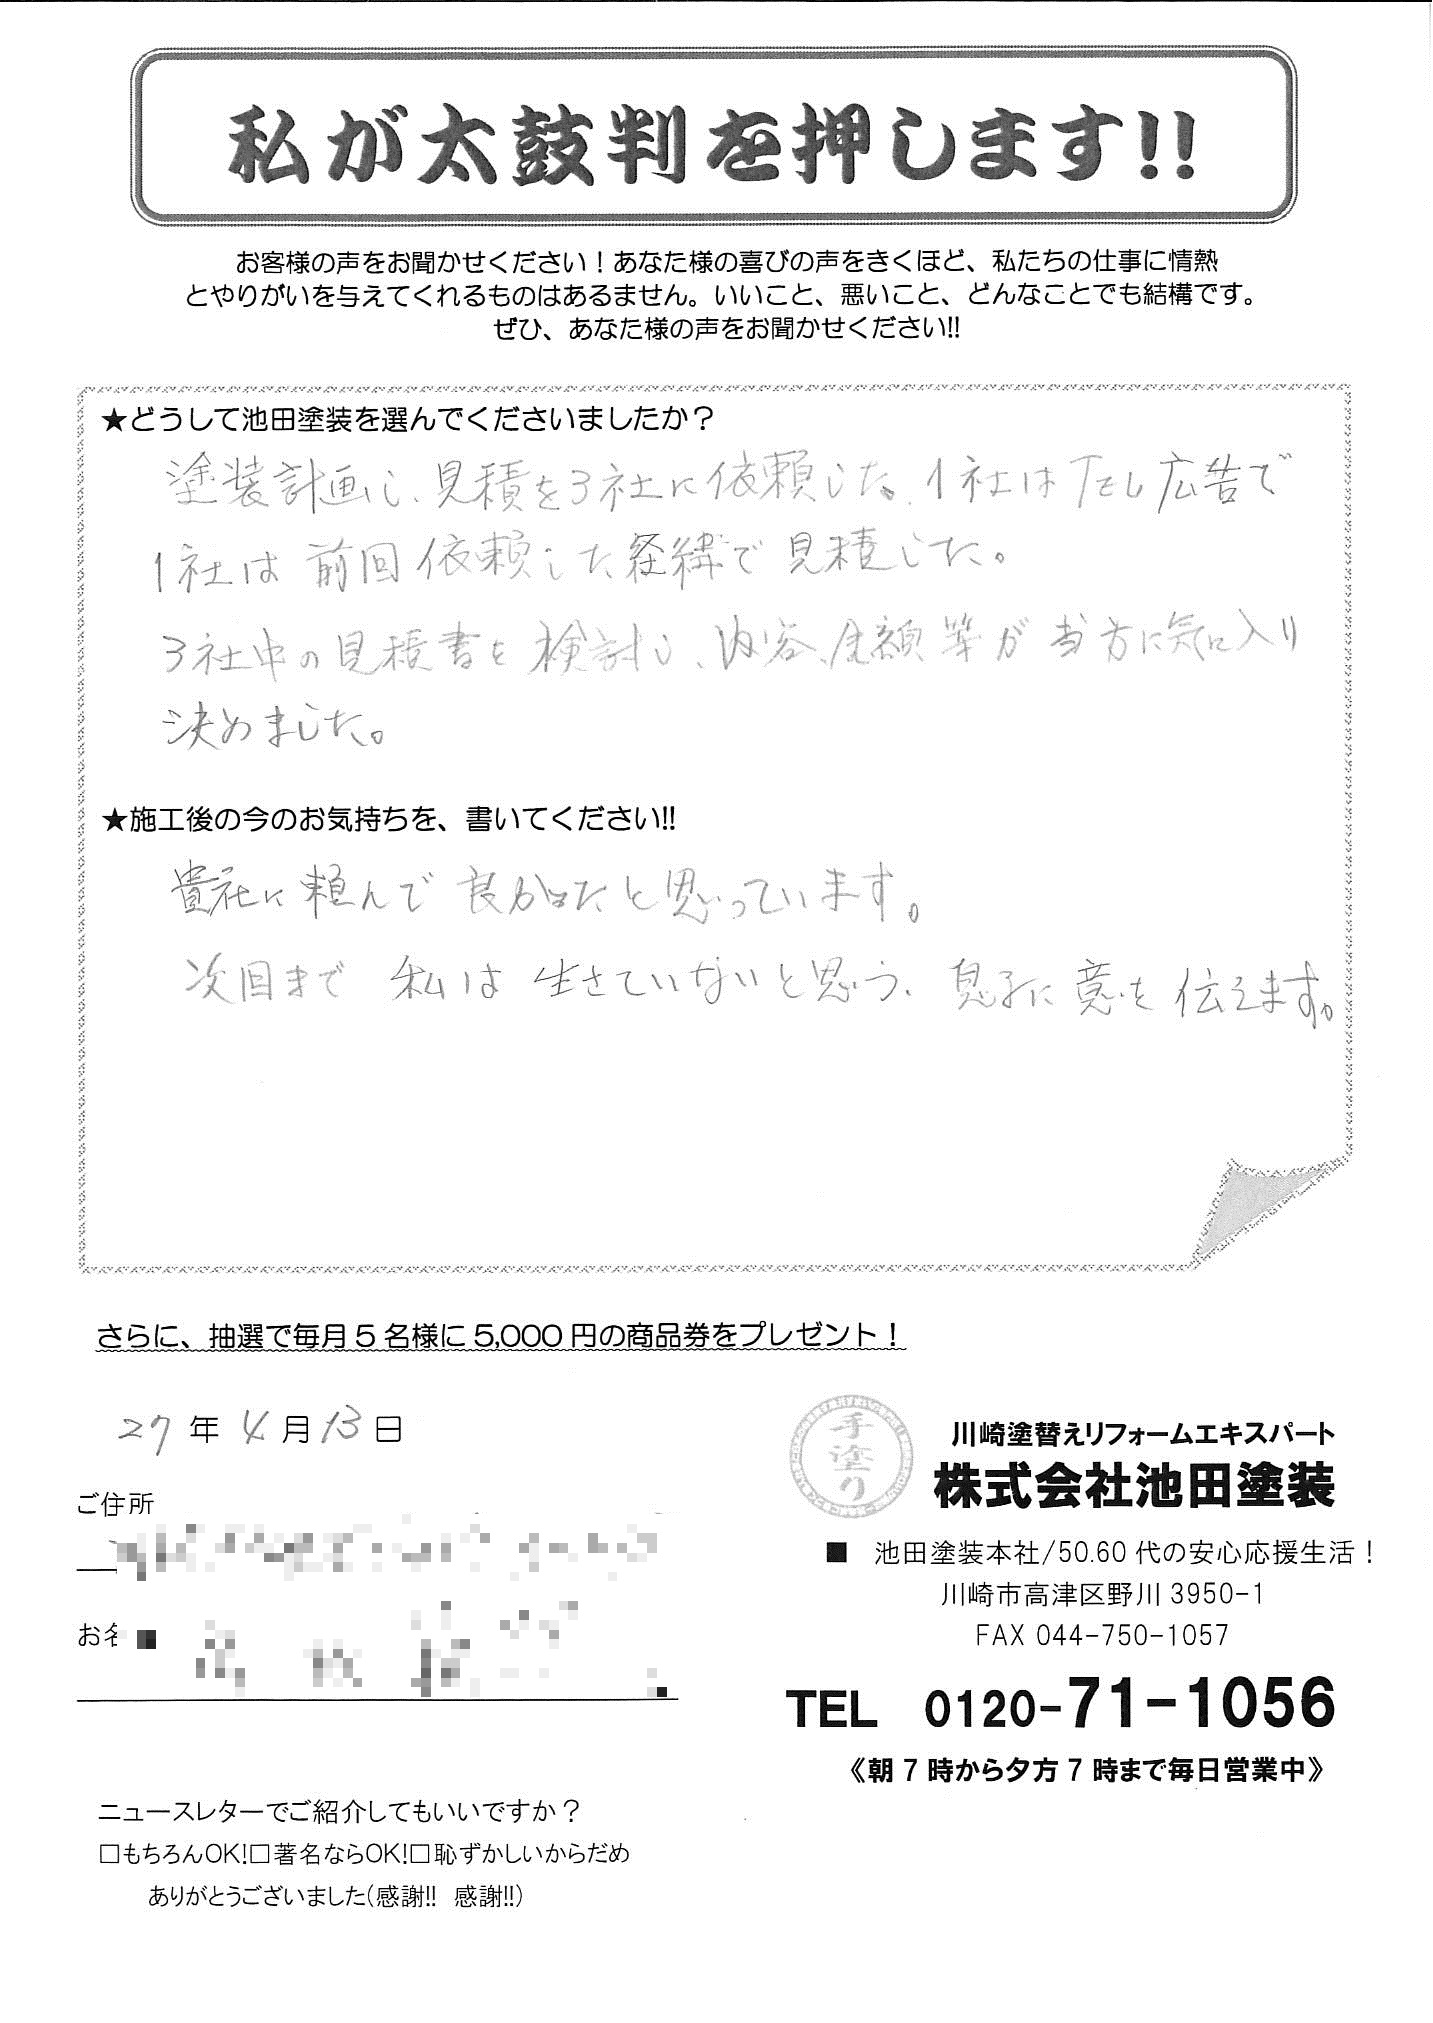 私が太鼓判を押します!!
お客様の声をお聞かせください！あなた様の喜びの声をきくほど、私たちの仕事に情熱
とやりがいを与えてくれるものはあるません。いいこと、悪いこと、どんなことでも結構です。
ぜひ、あなた様の声をお聞かせください!!
★どうして池田塗装を選んでくださいましたか？
塗装計画し、見積を3社に依頼した。1社はTEL広告で
1社は前回依頼した経緯で見積した。
3社中の見積書を検討し、内容、金額等が当方に気に入り
決めました。
★施工後の今のお気持ちを、書いてください!!
貴社に頼んで良かったと思っています。
次回まで私は生きていないと思う、息子に意を伝えます。
さらに、抽選で毎月5名様に5,000円の商品券をプレゼント！
27年4月13日
手塗り
川崎塗替えリフォームエキスパート
株式会社池田塗装
ご住所
■ 池田塗装本社/50.60代の安心応援生活！
川崎市高津区野川3950-1
お名
FAX 044-750-1057
TEL 0120-71-1056
《朝7時から夕方7時まで毎日営業中》
ニュースレターでご紹介してもいいですか？
□もちろんOK!□著名ならOK!□恥ずかしいからだめ
ありがとうございました(感謝!! 感謝!!)